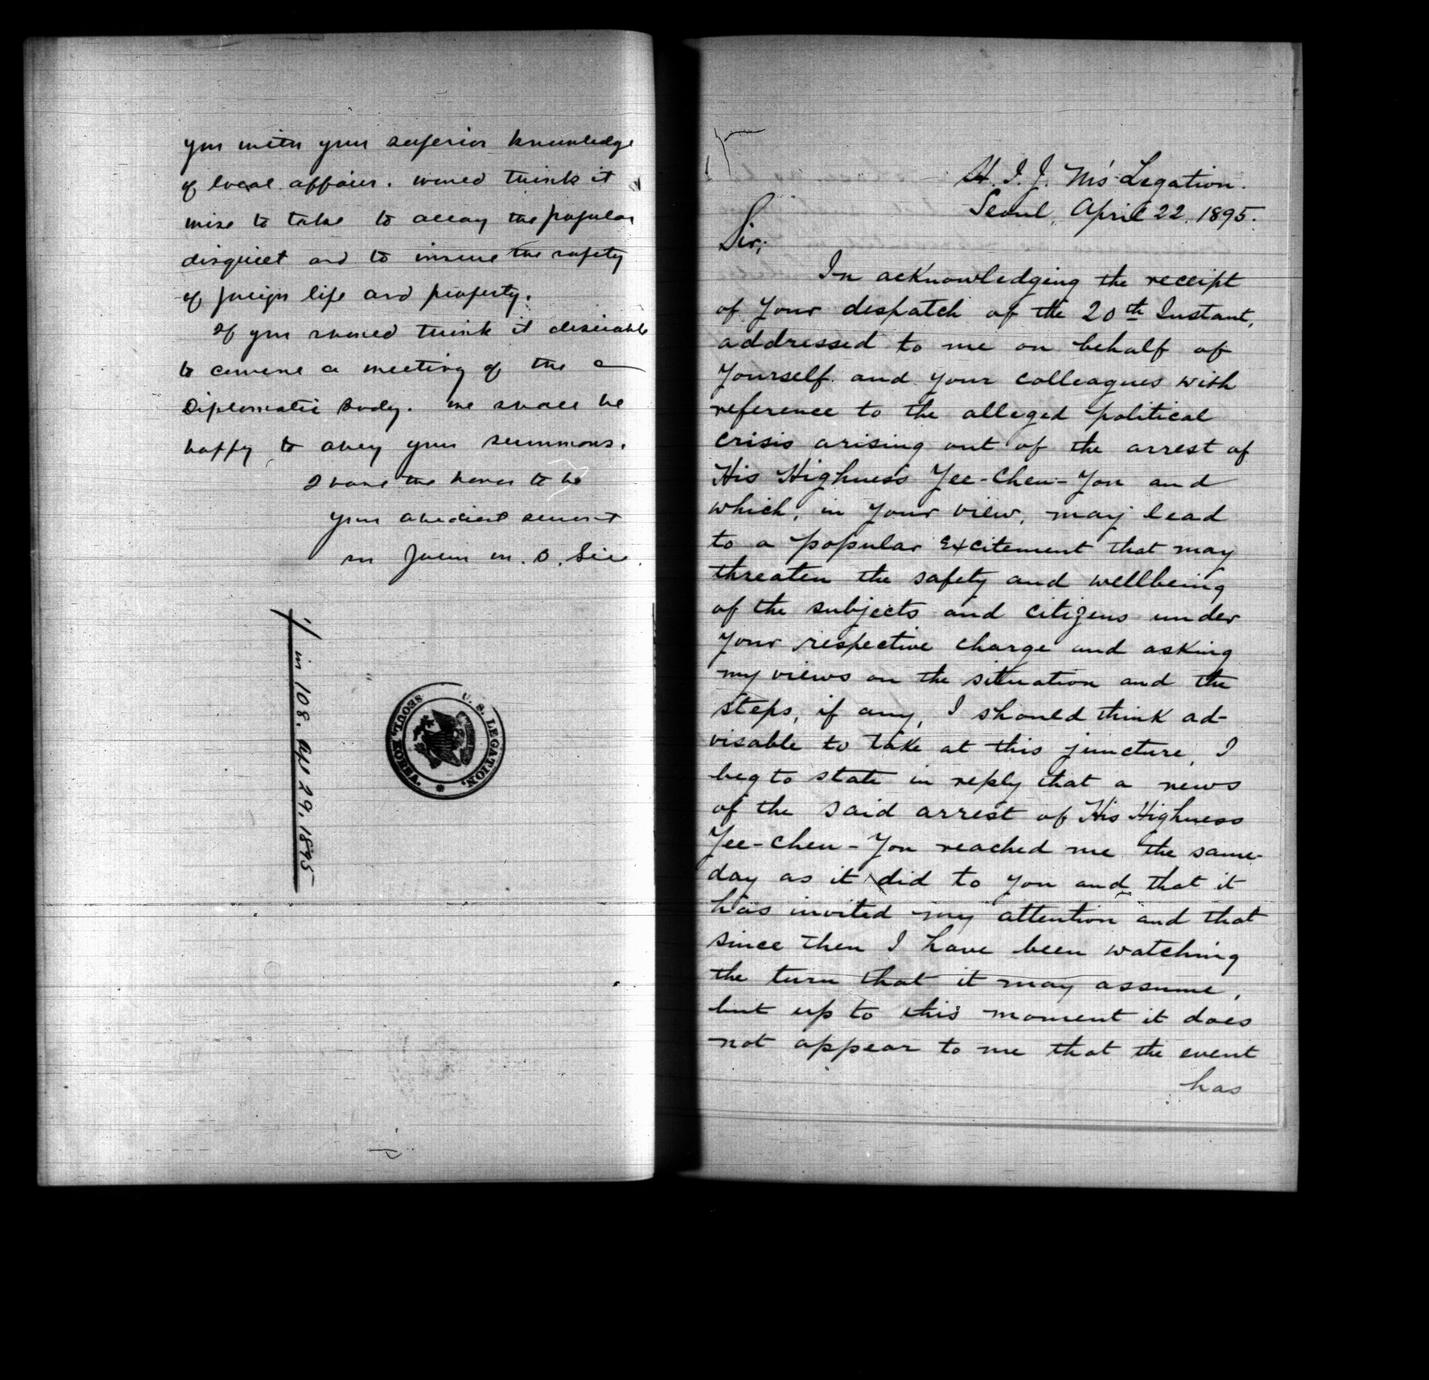 you with your superior knowledge
of local affairs. would think it
wise to take to allay the popular
disquiet and to insure the safety
of foreign life and property.
If you should think it desirable
to convene a meeting of the
Diplomatic Body. we shall be
happy to obey your summons.
I have the honor to be
your obedient servant
sn John M. B. Sill.
in 108. Apl 29, 1895
U. S. LEGATION.
SEOUL, KOREA
H. I. J. M's Legation.
Seoul, April 22, 1895.
Sir;
In acknowledging the receipt
of your despatch of the 20th Instant,
addressed to me on behalf of
yourself and your colleagues with
reference to the alleged political
crisis arising out of the arrest of
His Highness Yee-Chun-Yon and
which, in your view, may lead
to a popular excitement that may
threaten the safety and wellbeing
of the subjects and citizens under
your respective charge and asking
my views on the situation and the
steps, if any, I should think ad-
visable to take at this juncture, I
beg to state in reply that a news
of the said arrest of His Highness
Yee-chun-Yon reached me the same
day as it did to you and that it
has invited my attention and that
since then I have been watching
the turn that it may assume,
but up to this moment it does
not appear to me that the event
has